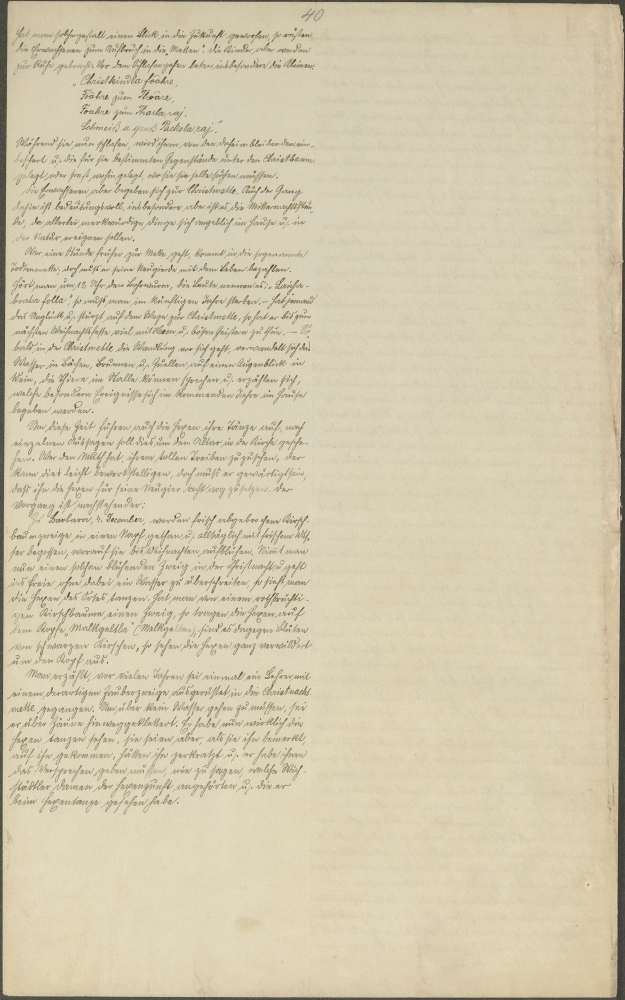 40
Hat man solchergestalt einen Blick in die Zukunft geworfen, so rüsten
die Erwachsenen zum Aufbruch in die „Metten“. Die Kinder aber werden
zur Ruhe gebracht. Vor dem Schlafengehen beten insbesondere die Kleinen:
„Christkindla
zum
zum
Während sie nun schlafen, wird ihnen, von den daheim bleibenden ein-
beschert u. die für sie bestimmten Gegenstände unter den Christbaum
gelegt, oder sonst wohin gelegt, wo sie sie selbst suchen müssen.
Die Erwachsenen aber begeben sich zur Christmette. Auch der Gang
dahin ist bedeutungsvoll, insbesondere aber ist es die Mitternachtsstun-
de, da allerlei merkwürdige Dinge sich angeblich im Hause u. in
der Natur ereignen sollen.
Wer eine Stunde früher zur Mette geht, kommt in die sogenannte
Totenmette, doch muß er seine Neugierde mit dem Leben bezahlen.
Hört man um 12 Uhr den die Leute nennen es:
so muß man im künftigen Jahre sterben. – Hat jemand
das Unglück u. stürzt auf dem Wege zur Christmette, so hat er bis zum
nächsten Weihnachtsfeste viel mit u. bösen Geistern zu thun. – So-
bald in der Christmette die Wandlung vor sich geht, verwandelt sich das
Wasser in Bächen, Brunnen u. Quellen auf einen Augenblick in
Wein, die Thiere im Stalle können sprechen u. erzählen sich,
welche besondern Ereignisse sich im kommenden Jahre im Hause
begeben werden.
Um diese Zeit führen auch die Hexen ihre Tänze auf, nach
einzelnen Aussagen soll dies um den Altar in der Kirche gesche-
hen. Wer den Muth hat, ihrem tollen Treiben zuzusehen, der
kann dies leicht bewerkstelligen, doch muß er gewärtig sein,
daß ihm die Hexen für seine Neugier arg zusetzen. Der
Vorgang ist nachstehender:
Zu Barbara, 4. December, werden frisch abgebrochene Kirsch-
baumzweige in einen Napf gethan u. alltäglich mit frischem Was-
ser begossen, worauf sie bis Weihnachten aufblühen. Nimt man
nun einen solchen blühenden Zweig in der Christnacht u. geht
ins Freie ohne dabei ein Wasser zu überschreiten, so sieht man
die Hexen des Ortes tanzen. Hat man von einem rothfrüchti-
gen Kirschbaume einen Zweig, so tragen die Hexen auf
dem Kopfe „Malkgeltla“ (Melkgelten), sind es dagegen Blüten
von schwarzen Kirschen, so sehen die Hexen ganz verwildert
um den Kopf aus.
Man erzählt, vor vielen Jahren sei einmal ein Lehrer mit
einem derartigen Zauberzweige ausgerüstet in die Christnacht-
mette gegangen. Um über kein Wasser gehen zu müssen, sei
er über Zäune hinweggeklettert. Er habe nun wirklich die
Hexen tanzen sehen, sie seien aber, als sie ihn bemerkt,
auf ihn gekommen, hätten ihn zerkratzt u. er habe ihnen
das Versprechen geben müssen, nie zu sagen, welche
Damen der Hexenzunft angehörten u. die er
beim Hexentanze gesehen habe.